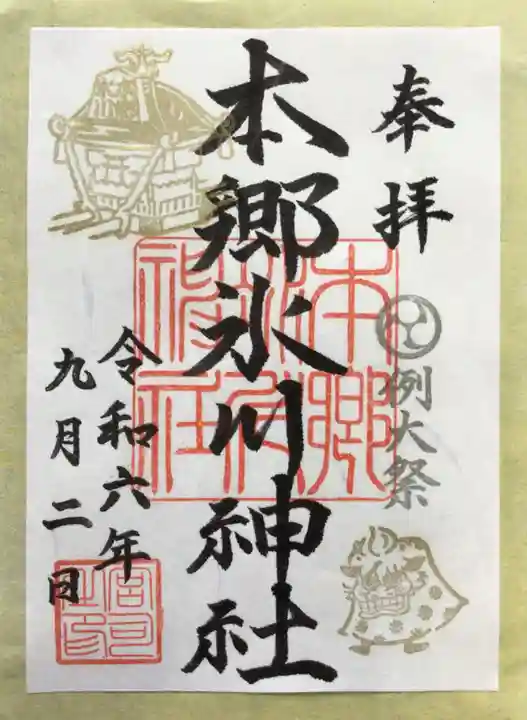 奉拝
例大祭
本郷氷川神社
本郷氷川神社
令和六年
九月二日
宮司之印